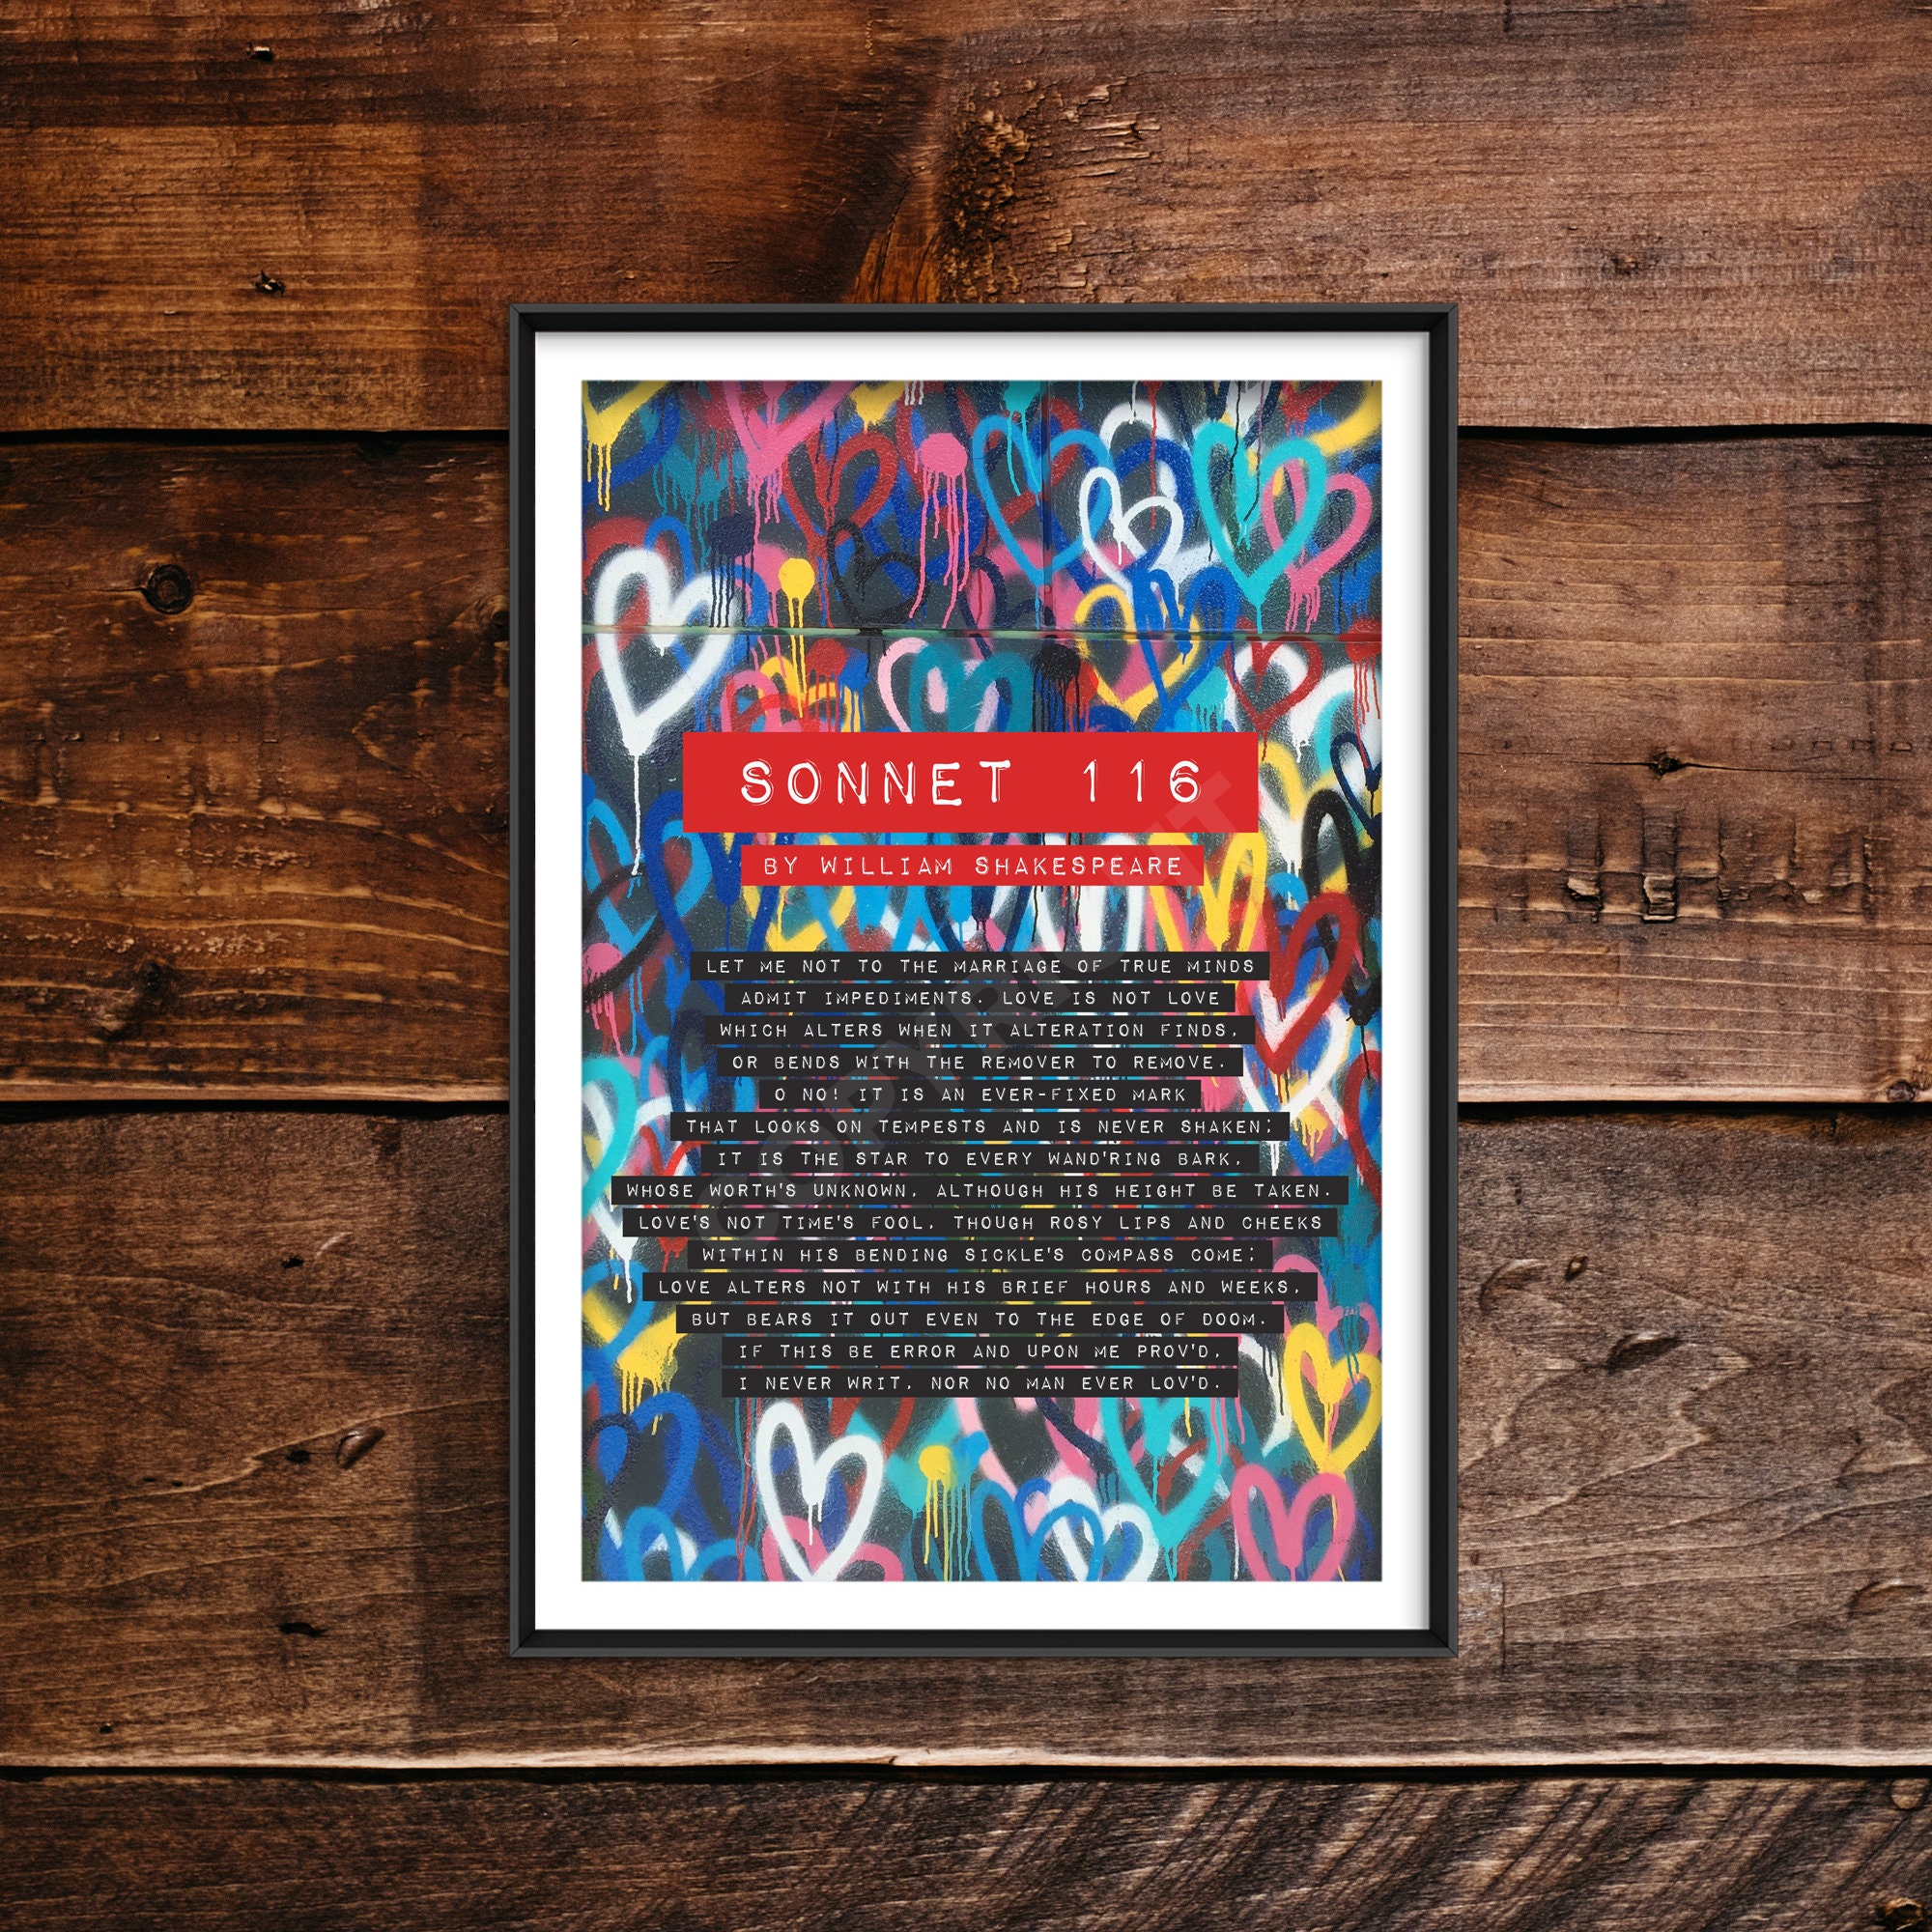 SONNET 116
BY WILLIAM SHAKESPEARE
LET ME NOT TO THE MARRIAGE OF TRUE MINDS
ADMIT IMPEDIMENTS. LOVE IS NOT LOVE
WHICH ALTERS WHEN IT ALTERATION FINDS,
OR BENDS WITH THE REMOVER TO REMOVE.
O NO! IT IS AN EVER-FIXED MARK
THAT LOOKS ON TEMPESTS AND IS NEVER SHAKEN;
IT IS THE STAR TO EVERY WAND'RING BARK,
WHOSE WORTH'S UNKNOWN, ALTHOUGH HIS HEIGHT BE TAKEN.
LOVE'S NOT TIME'S FOOL, THOUGH ROSY LIPS AND CHEEKS
WITHIN HIS BENDING SICKLE'S COMPASS COME;
LOVE ALTERS NOT WITH HIS BRIEF HOURS AND WEEKS,
BUT BEARS IT OUT EVEN TO THE EDGE OF DOOM.
IF THIS BE ERROR AND UPON ME PROV'D,
I NEVER WRIT, NOR NO MAN EVER LOV'D.
COPYRIGHT